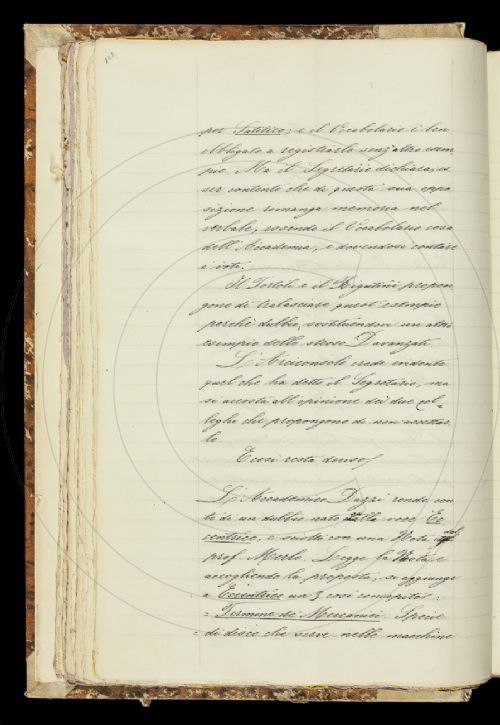 148
per Satirico; e il Vocabolario è ben
obbligato a registrarlo senz'altro esem-
pio. Ma il Segretario dichiara, es-
ser contento che di questa sua oppo-
sizione rimanga memoria nel
verbale, essendo il Vocabolario cosa
dell'Accademia, e dovendovi contare
i voti.
Il Tortoli e il Rigutini propon-
gono di tralasciare quest'esempio
perchè dubbio, sostituendovi un altro
esempio dello stesso Davanzati.
L'Arciconsolo crede evidente
quel che ha detto il Segretario, ma
si accosta all'opinione dei due Col-
leghi che propongono di non accettar-
lo.
E così resta deciso.
L'Accademico Dazzi rende con-
to di un dubbio nato sulla voce Ec-
centrico, e sciolto con una Nota del
prof Merlo. Legge la Nota, e
accogliendo la proposta, si aggiunge
a Eccentrico un § così concepito:
= Termine de' Meccanici. Specie
= di disco che serve nelle macchine